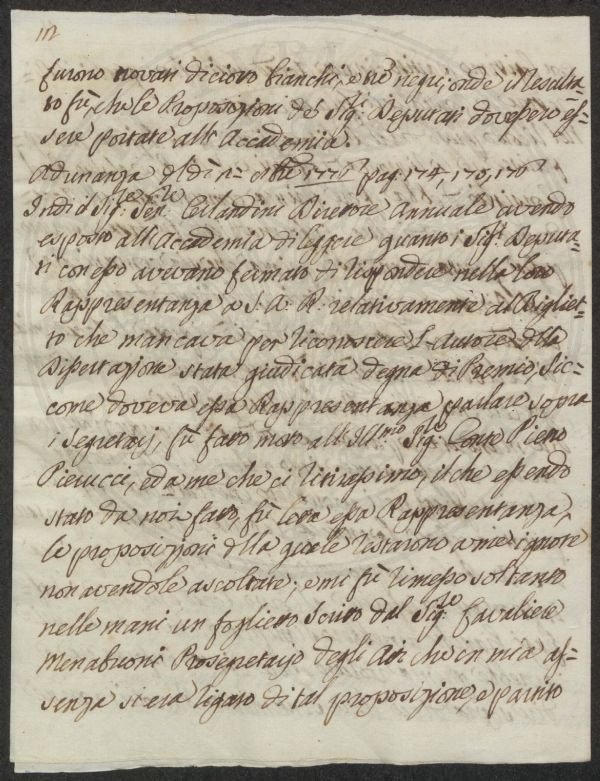 112
furono novari diciovo bianchi, e nè negri; onde il Resulta=
to fù, che le Proposizioni de' Sig:ri Deputati dovessero es=
sere portate all'Accademia.
Adunanza del dì 1776 pag: 174, 175, 176
Indi il Sig:re Sen:re Orlandini Direttore Annuale avendo
esposto all'Accademia di leggere quanto i Sig:ri Deputa=
ti con esso avevano fermato di rispondere nella loro
Rappresentanza a S. A. R. relativamente al Bigliet=
to che mancava per riconoscere l'Autore della
Dissertazione stata giudicata degna di Premio, sic=
come doveva essa Rappresentanza parlare sopra
i Segretarj, fù fatto moto all'Ill:mo Sig:re Conte Piero
Pierucci, ed a me che ci ritirassimo, il che essendo
stato da noi fatto, fù letta essa Rappresentanza,
le proposizioni della quale restarono a me ignote
non avendole ascoltate; e mi fù rimesso soltanto
nelle mani un foglietto scritto dal Sig:re Cavaliere
Menabuoni Prosegretario degli Atti che in mia as=
senza si era rigato di tal proposizione, e partito